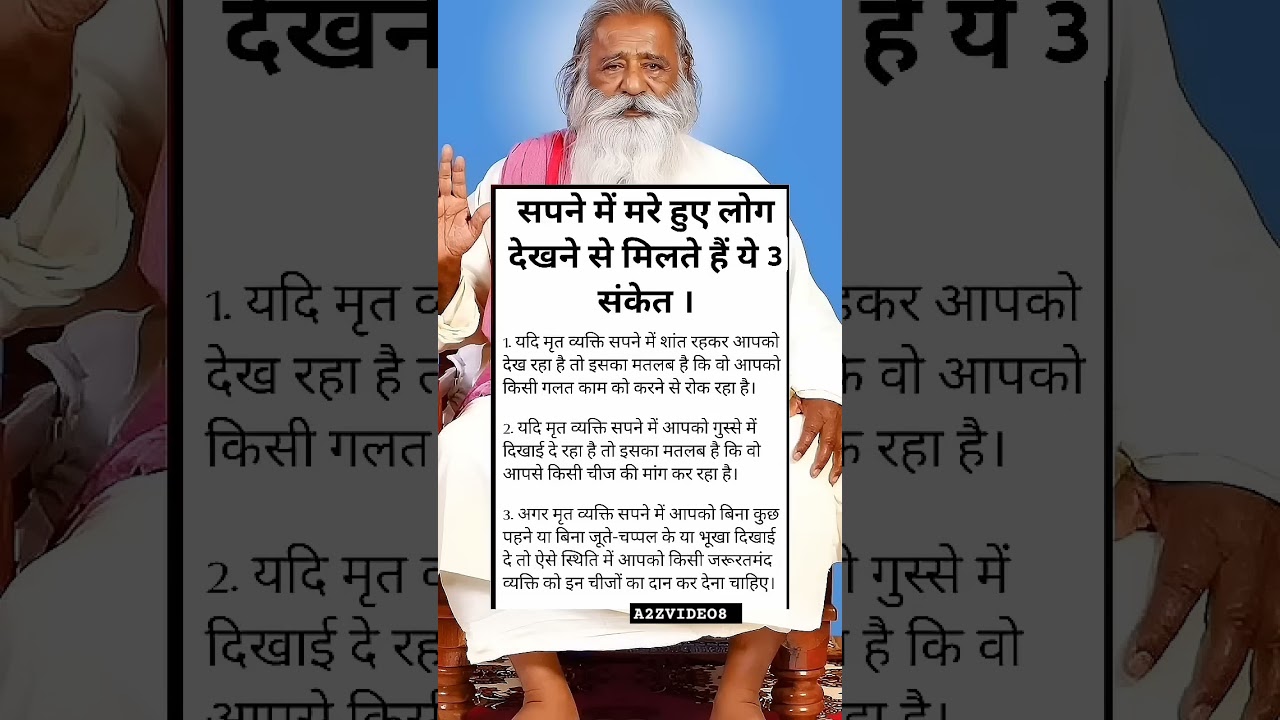 सपने में मरे हुए लोग
देखने से मिलते हैं ये 3
संकेत ।
1. यदि मृत व्यक्ति सपने में शांत रहकर आपको
देख रहा है तो इसका मतलब है कि वो आपको
किसी गलत काम को करने से रोक रहा है।
2. यदि मृत व्यक्ति सपने में आपको गुस्से में
दिखाई दे रहा है तो इसका मतलब है कि वो
आपसे किसी चीज की मांग कर रहा है।
3. अगर मृत व्यक्ति सपने में आपको बिना कुछ
पहने या बिना जूते-चप्पल के या भूखा दिखाई
दे तो ऐसे स्थिति में आपको किसी जरूरतमंद
व्यक्ति को इन चीजों का दान कर देना चाहिए।
A2ZVIDEO8